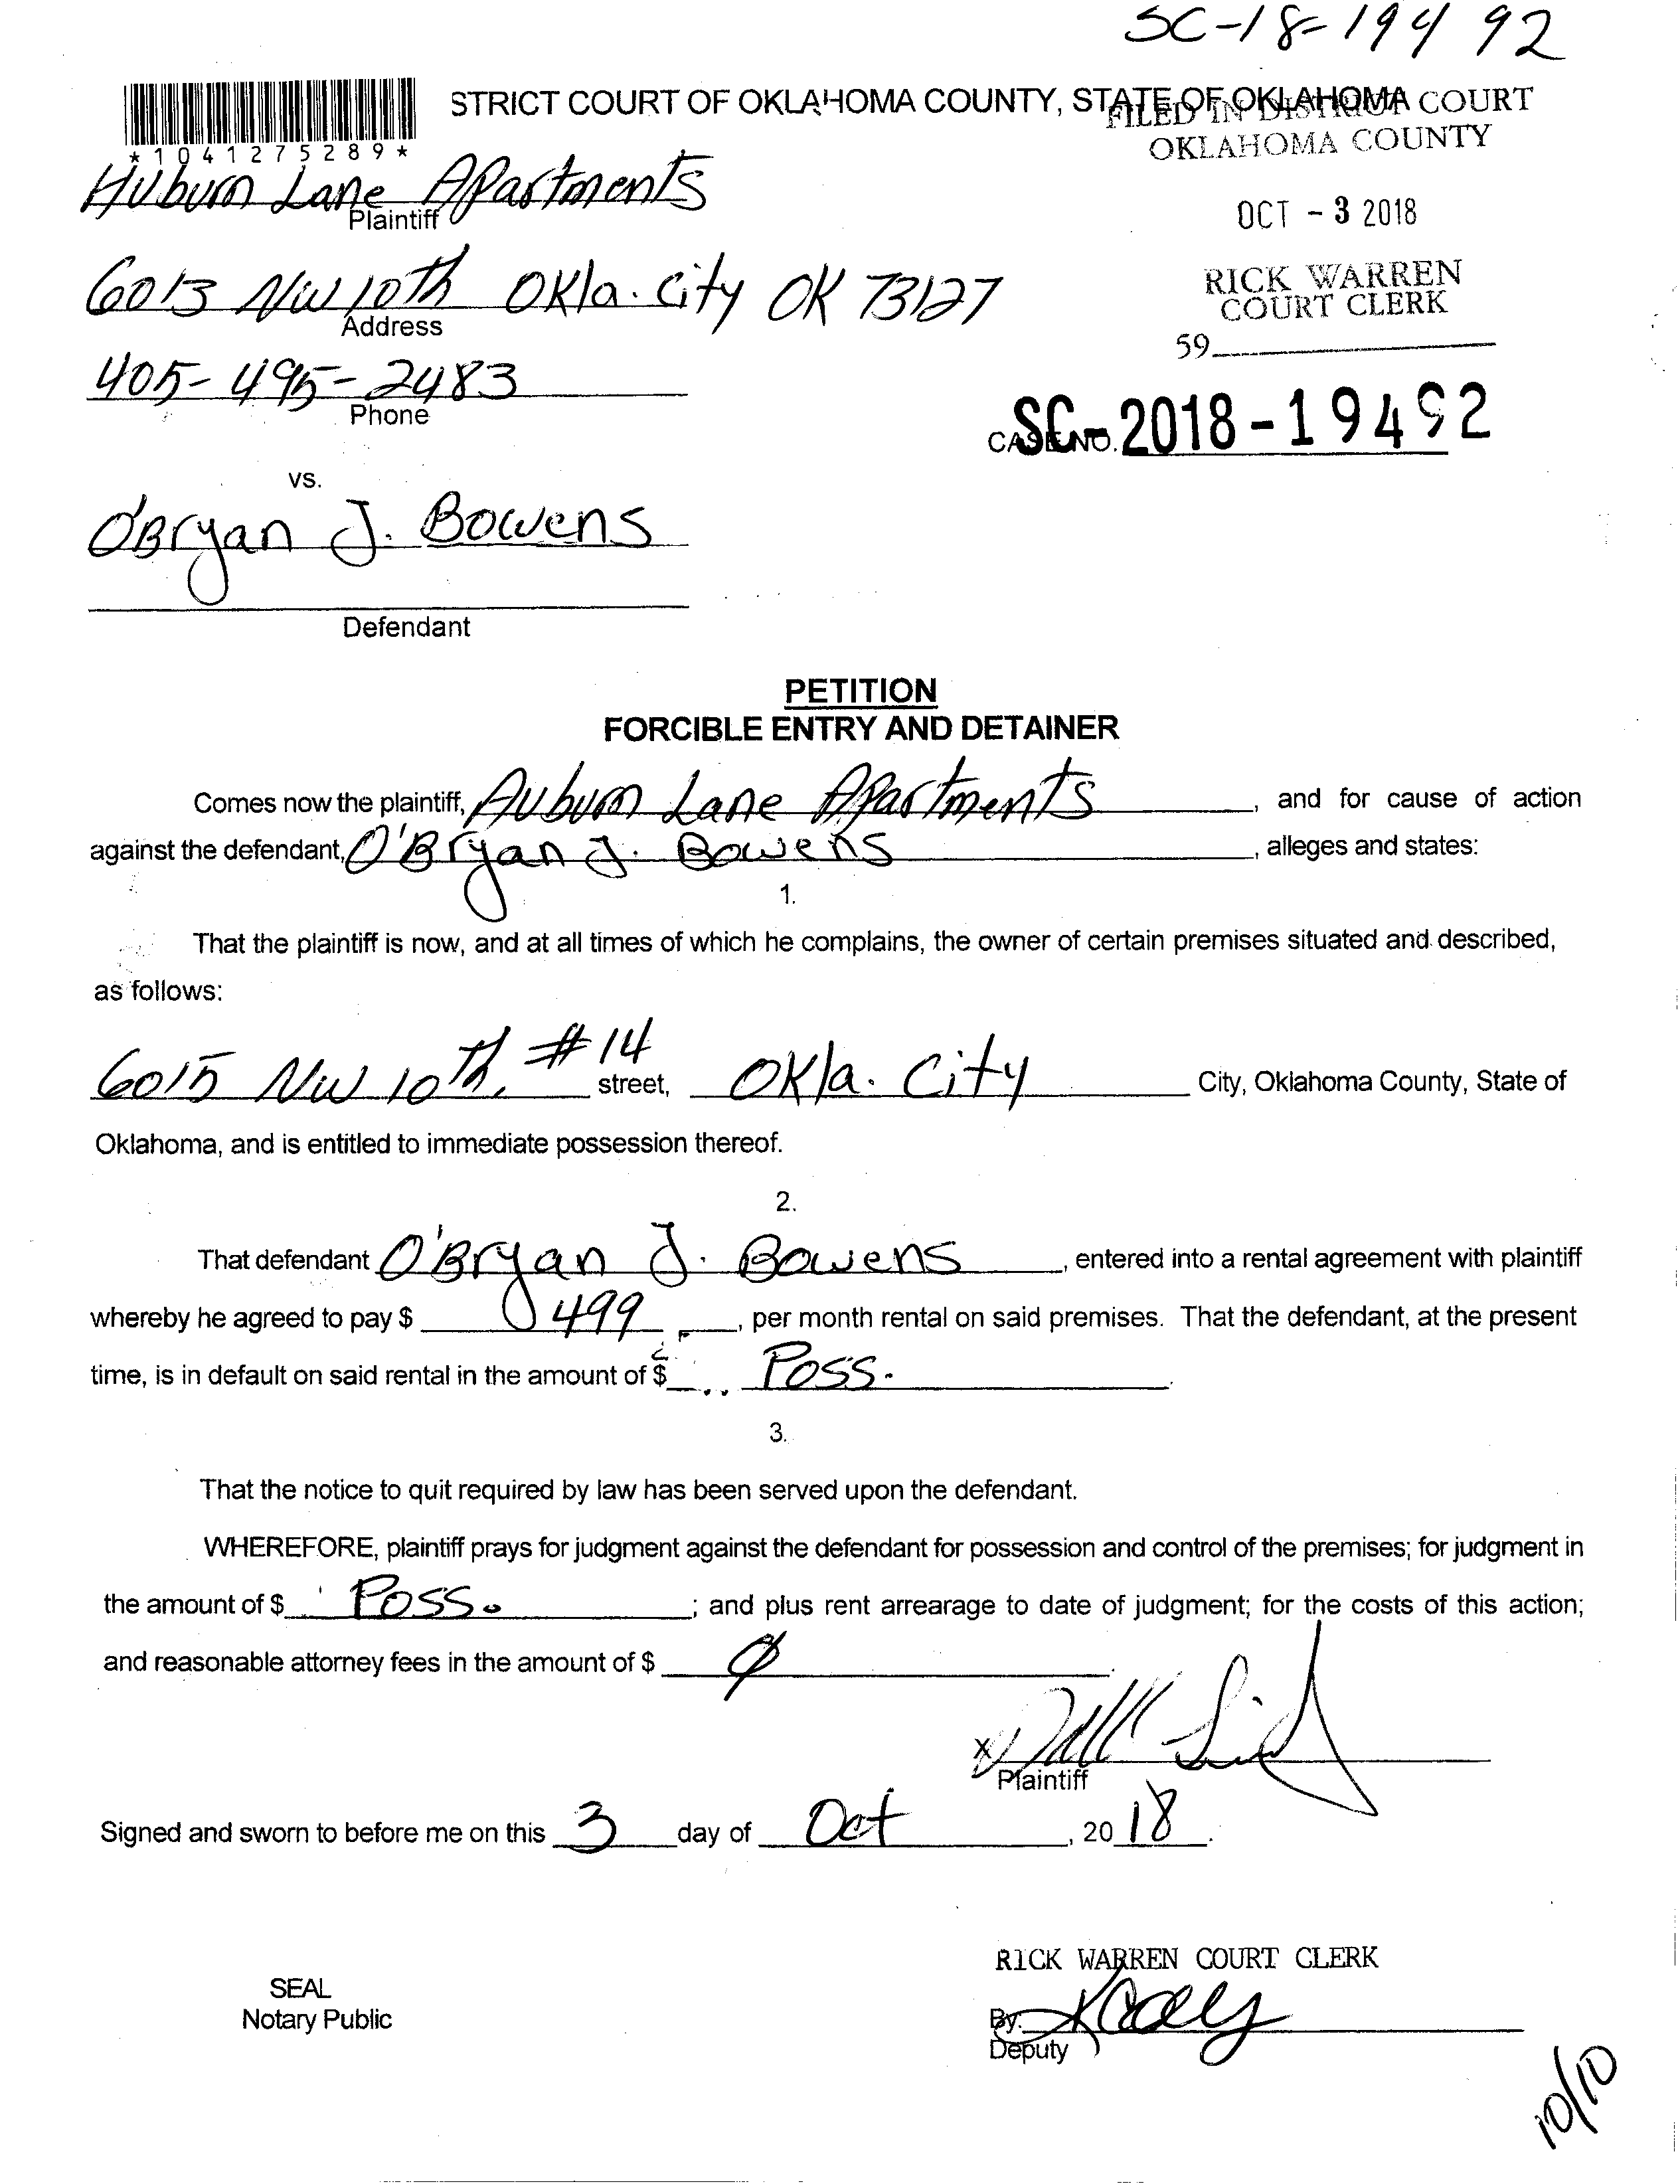 SC-18-194 92
STRICT COURT OF OKLAHOMA COUNTY, STATE OF OKLAHOMA
FILED IN DISTRICT COURT
OKLAHOMA COUNTY
*1041275289*
Auburn Lane Apartments
Plaintiff
OCT - 3 2018
6013 NW 10th Okla. City OK 73127
Address
RICK WARREN
COURT CLERK
59
405-495-2483
Phone
CASE NO. SC-2018-19492
vs.
O'Bryan J. Bowens
Defendant
PETITION
FORCIBLE ENTRY AND DETAINER
Comes now the plaintiff, Auburn Lane Apartments, and for cause of action
against the defendant, O'Bryan J. Bowens, alleges and states:
1.
That the plaintiff is now, and at all times of which he complains, the owner of certain premises situated and described,
as follows:
6015 NW 10th, #14 street, Okla. City City, Oklahoma County, State of
Oklahoma, and is entitled to immediate possession thereof.
2.
That defendant O'Bryan J. Bowens, entered into a rental agreement with plaintiff
whereby he agreed to pay $ 499, per month rental on said premises. That the defendant, at the present
time, is in default on said rental in the amount of $ Poss.
3.
That the notice to quit required by law has been served upon the defendant.
WHEREFORE, plaintiff prays for judgment against the defendant for possession and control of the premises; for judgment in
the amount of $ Poss.; and plus rent arrearage to date of judgment; for the costs of this action;
and reasonable attorney fees in the amount of $ Ø
X
Plaintiff
Signed and sworn to before me on this 3 day of Oct, 2018.
RICK WARREN COURT CLERK
SEAL
Notary Public
By:
Deputy
10/10